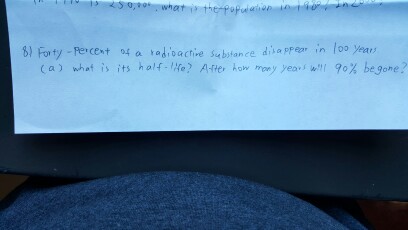 is 250,000, what is the population in
8) Forty-percent of a radioactive substance disappear in 100 years
(a) what is its half-life? After how many years will 90% be gone?